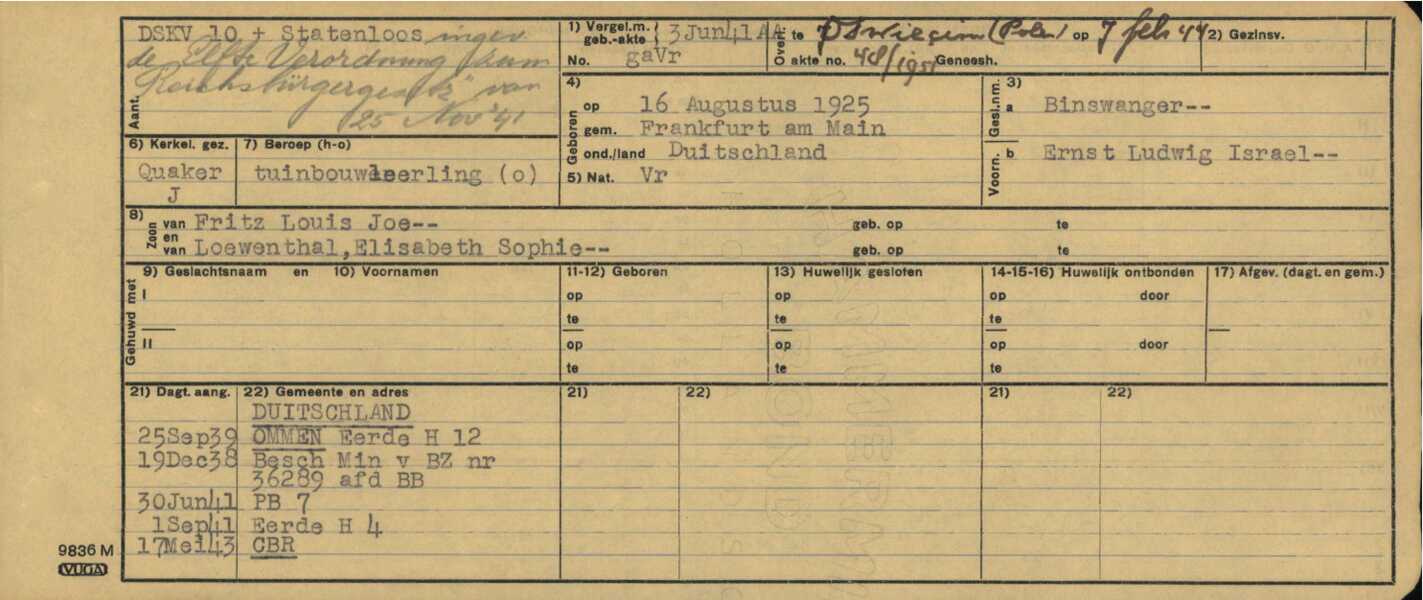 DSKV 10 + Statenloos ingev
de Elfte Verordnung "zum
Reichsbürgergesetz" van
25 Nov '41
Aant.
1) Vergel.m. geb.-akte 3Jun41AA
No. gaVr
Overl. te Oswiecim (Polen) op 7 feb 44
akte no. 48/1951 Geneesh.
2) Gezinsv.
3)
Gesl.nm. a Binswanger--
Voorn. b Ernst Ludwig Israel--
4)
Geboren op 16 Augustus 1925
gem. Frankfurt am Main
ond./land Duitschland
5) Nat. Vr
6) Kerkel. gez.
Quaker
J
7) Beroep (h-o)
tuinbouwleerling (o)
8)
Zoon van Fritz Louis Joe-- geb. op te
en
van Loewenthal,Elisabeth Sophie-- geb. op te
Gehuwd met
9) Geslachtsnaam en 10) Voornamen 11-12) Geboren 13) Huwelijk gesloten 14-15-16) Huwelijk ontbonden 17) Afgev. (dagt. en gem.)
I op op op door
te te te
II op op op door
te te te
21) Dagt. aang. 22) Gemeente en adres 21) 22) 21) 22)
DUITSCHLAND
25Sep39 OMMEN Eerde H 12
19Dec38 Besch Min v BZ nr
36289 afd BB
30Jun41 PB 7
1Sep41 Eerde H 4
17Mei43 CBR
9836 M
VUGA